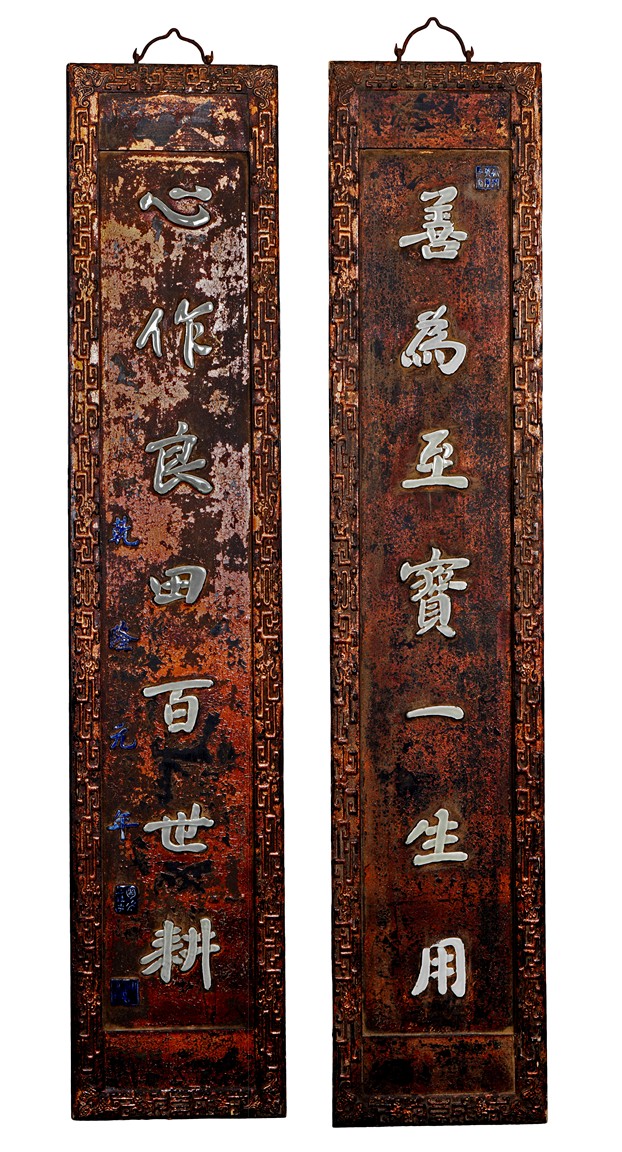 善為至寶一生用
心作良田百世耕
乾隆元年